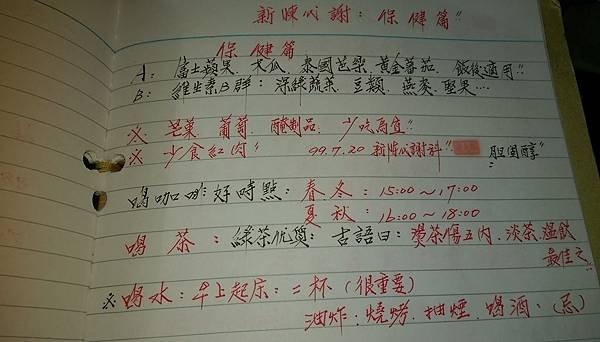 新陳代謝：保健篇"
保健篇
A：富士蘋果、木瓜、泰國芭樂、黃金蕃茄、飯後適用!!
B：維生素B群：深綠蔬菜、豆類、燕麥、堅果…
※芒菓、葡萄、醃製品、少吃為宜"
※少食紅肉" 99.7.20 新陳代謝科" 胆固醇"
喝咖啡好時點：春.冬：15:00～17:00
夏 秋：16:00～18:00
喝 茶：綠茶优質：古語曰：燙茶傷五内、淡茶、溫飲
最佳之
※喝水：早上起床：二杯（很重要）
油炸、燒烤、抽煙、喝酒、（忌）